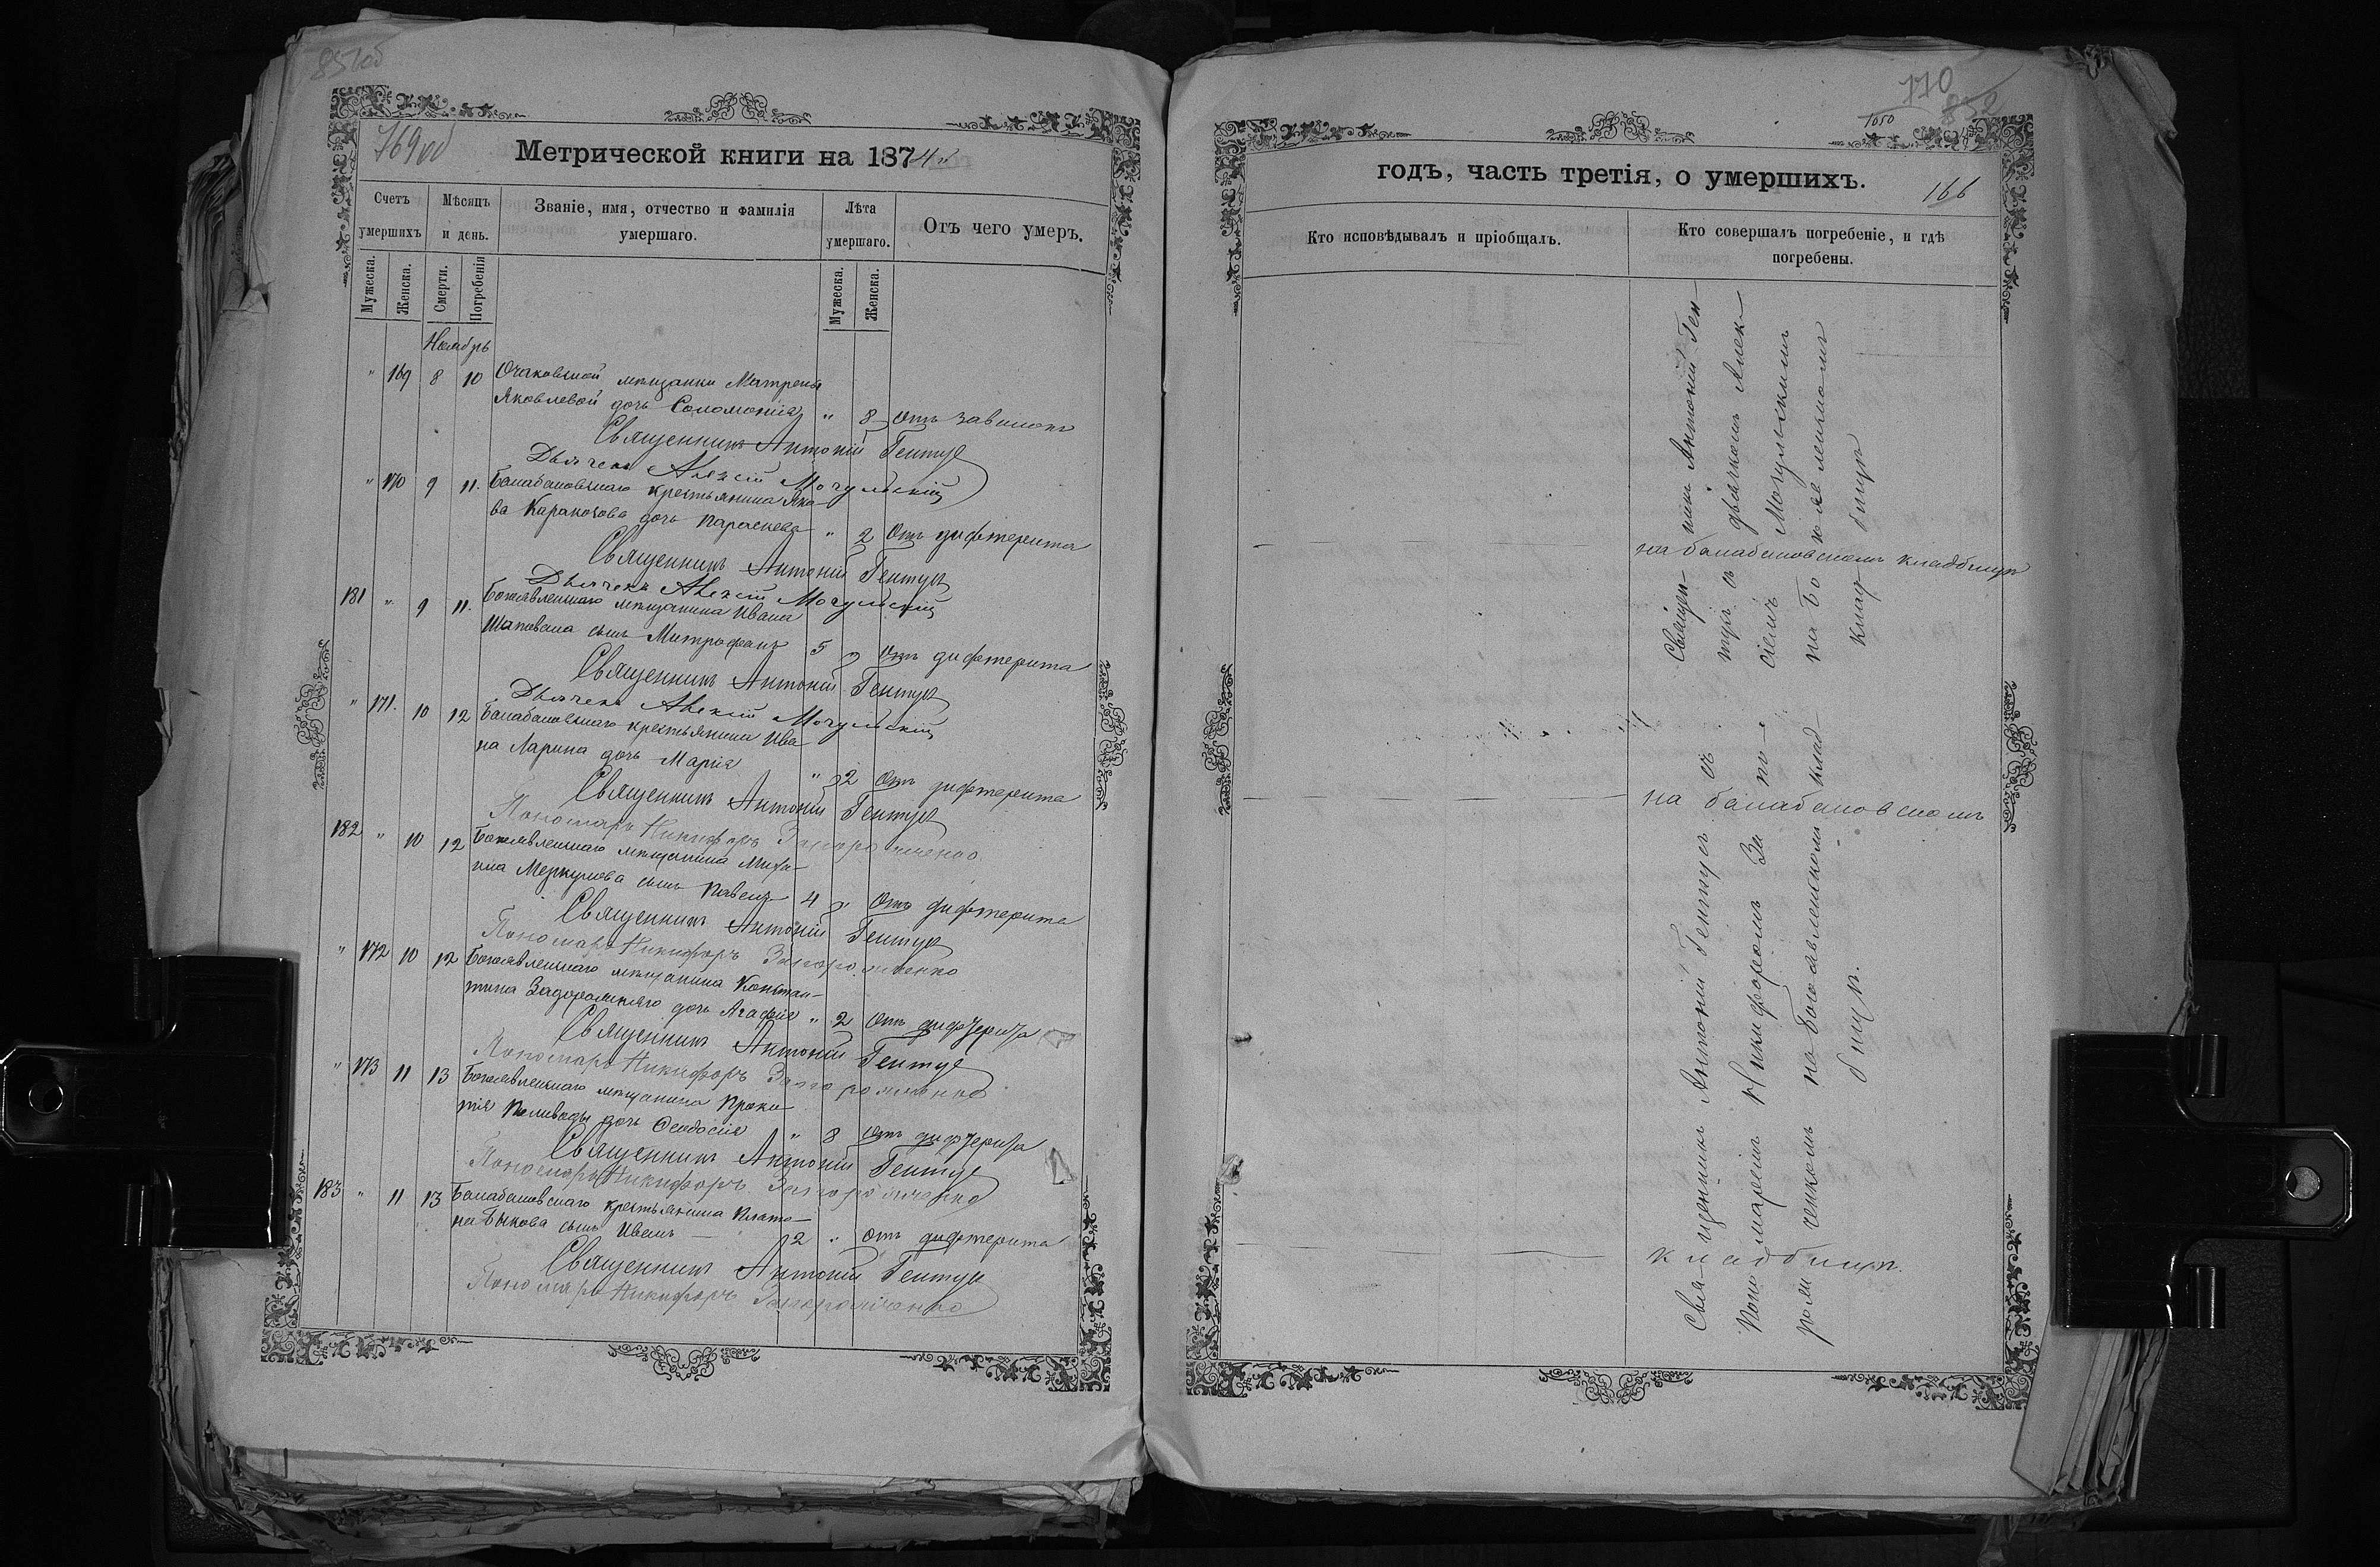 851об
769об
Метрической книги на 1874й
Счетъ умершихъ
Мѣсяцъ и день.
Званіе, имя, отчество и фамилія умершаго.
Лѣта умершаго.
Отъ чего умеръ.
Мужеска.
Женска.
Смерти.
Погребенія
Мужеска.
Женска.
Ноябрь
" 169 8 10 Очаковской мѣщанки Матрены
Яковлевой дочь Соломонія " 8 Отъ
Священникъ Антоній Гентуе
Дьячекъ Алексій Мочульскій
" 170 9 11. Балабановскаго крестьянина Яко-
ва Каракозова дочь Параскева " 2 Отъ дифтерита
Священникъ Антоній Гентуе
Дьячекъ Алексій Мочульскій
181 " 9 11. Богоявленскаго мѣщанина Ивана
Шаповала сынъ Митрофанъ 5 " Отъ дифтерита
Священникъ Антоній Гентуе
Дьячекъ Алексій Мочульскій
" 171. 10 12 Балабановскаго крестьянина Ива
на Ларина дочь Марія " 2 Отъ дифтерита
Священникъ Антоній Гентуе
Пономарь Никифоръ Запорожченко
182 " 10 12 Богоявленскаго мѣщанина Миха-
ила Меркулова сынъ Павелъ 4 " Отъ дифтерита
Священникъ Антоній Гентуе
Пономарь Никифоръ Запорожченко
" 172 10 12 Богоявленскаго мѣщанина Констан-
тина Задорожняго дочь Агафія " 2 Отъ дифтерита
Священникъ Антоній Гентуе
Пономарь Никифоръ Запорожченко
" 173 11 13 Богоявленскаго мѣщанина Проко-
пія Поливоды дочь Ѳеодосія " 8 Отъ дифтерита
Священникъ Антоній Гентуе
Пономарь Никифоръ Запорожченко
183 " 11 13 Балабановскаго крестьянина Плато-
на Быкова сынъ Иванъ 2 " Отъ дифтерита
Священникъ Антоній Гентуе
Пономарь Никифоръ Запорожченко
110
852
1050
годъ, часть третія, о умершихъ.
166
Кто исповѣдывалъ и пріобщалъ.
Кто совершалъ погребеніе, и гдѣ погребены.
Священ-никъ Антоній Ген-
туе съ дьячкомъ Алек-
сіемъ Мочульскимъ
на Богоявленскомъ
клад-бищѣ
на балабановскомъ кладбищѣ
Свя-щенникъ Антоній Гентуе съ
Поно-маремъ Никифоромъ Запо-
рож-ченкомъ на Богоявленскомъ клад-
бищѣ.
на балабановскомъ
кладбищѣ.